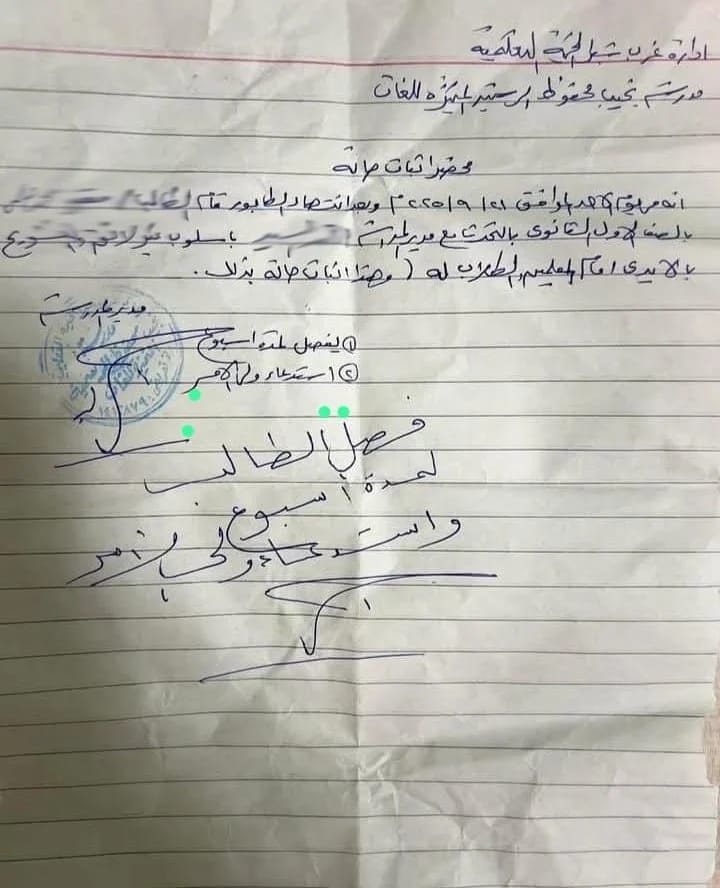 ادارة غرب شبرا الخيمة التعليمية
مدرسة نجيب محفوظ الرسمية المتميزة للغات
محضر اثبات حالة
انه فى يوم الاحد الموافق ٢١ / ٩ / ٢٠٢٥ م وبعد انتهاء الطابور قام الطالب
بالصف الاول الثانوى بالتحدث مع مدير المدرسة باسلوب غير لائق والتلويح
بالايدى امام المعلمين والطلاب له ( وهذا اثبات حالة بذلك .
مدير المدرسة
① يفصل لمدة اسبوع
② استدعاء ولى الامر
فصل الطالب
لمدة أسبوع
واستدعاء ولى الأمر